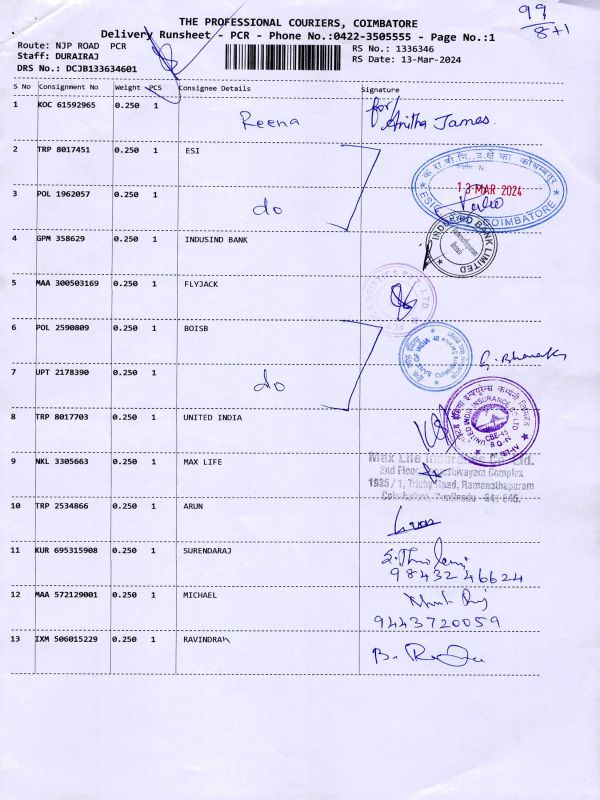 99
8+1
THE PROFESSIONAL COURIERS, COIMBATORE
Delivery Runsheet - PCR - Phone No.:0422-3505555 - Page No.:1
Route: NJP ROAD PCR
RS No.: 1336346
Staff: DURAIRAJ
RS Date: 13-Mar-2024
DRS No.: DCJB133634601
S No Consignment No Weight PCS Consignee Details Signature
1 KOC 61592965 0.250 1 Reena for/ Anitha James.
2 TRP 8017451 0.250 1 ESI
13 MAR 2024
3 POL 1962057 0.250 1 do
COIMBATORE
4 GPM 358629 0.250 1 INDUSIND BANK
INDUSIND BANK LIMITED
5 MAA 300503169 0.250 1 FLYJACK
6 POL 2590809 0.250 1 BOISB
7 UPT 2178390 0.250 1 do
8 TRP 8017703 0.250 1 UNITED INDIA
UNITED INDIA INSURANCE CO LTD
9 NKL 3305663 0.250 1 MAX LIFE
Max Life Co. Ltd.
2nd Floor, Complex
1935 / 1, Trichy Road, Ramanathapuram
10 TRP 2534866 0.250 1 ARUN
11 KUR 695315908 0.250 1 SURENDARAJ
98432 46624
12 MAA 572129001 0.250 1 MICHAEL
9443720059
13 IXM 506015229 0.250 1 RAVINDRAN